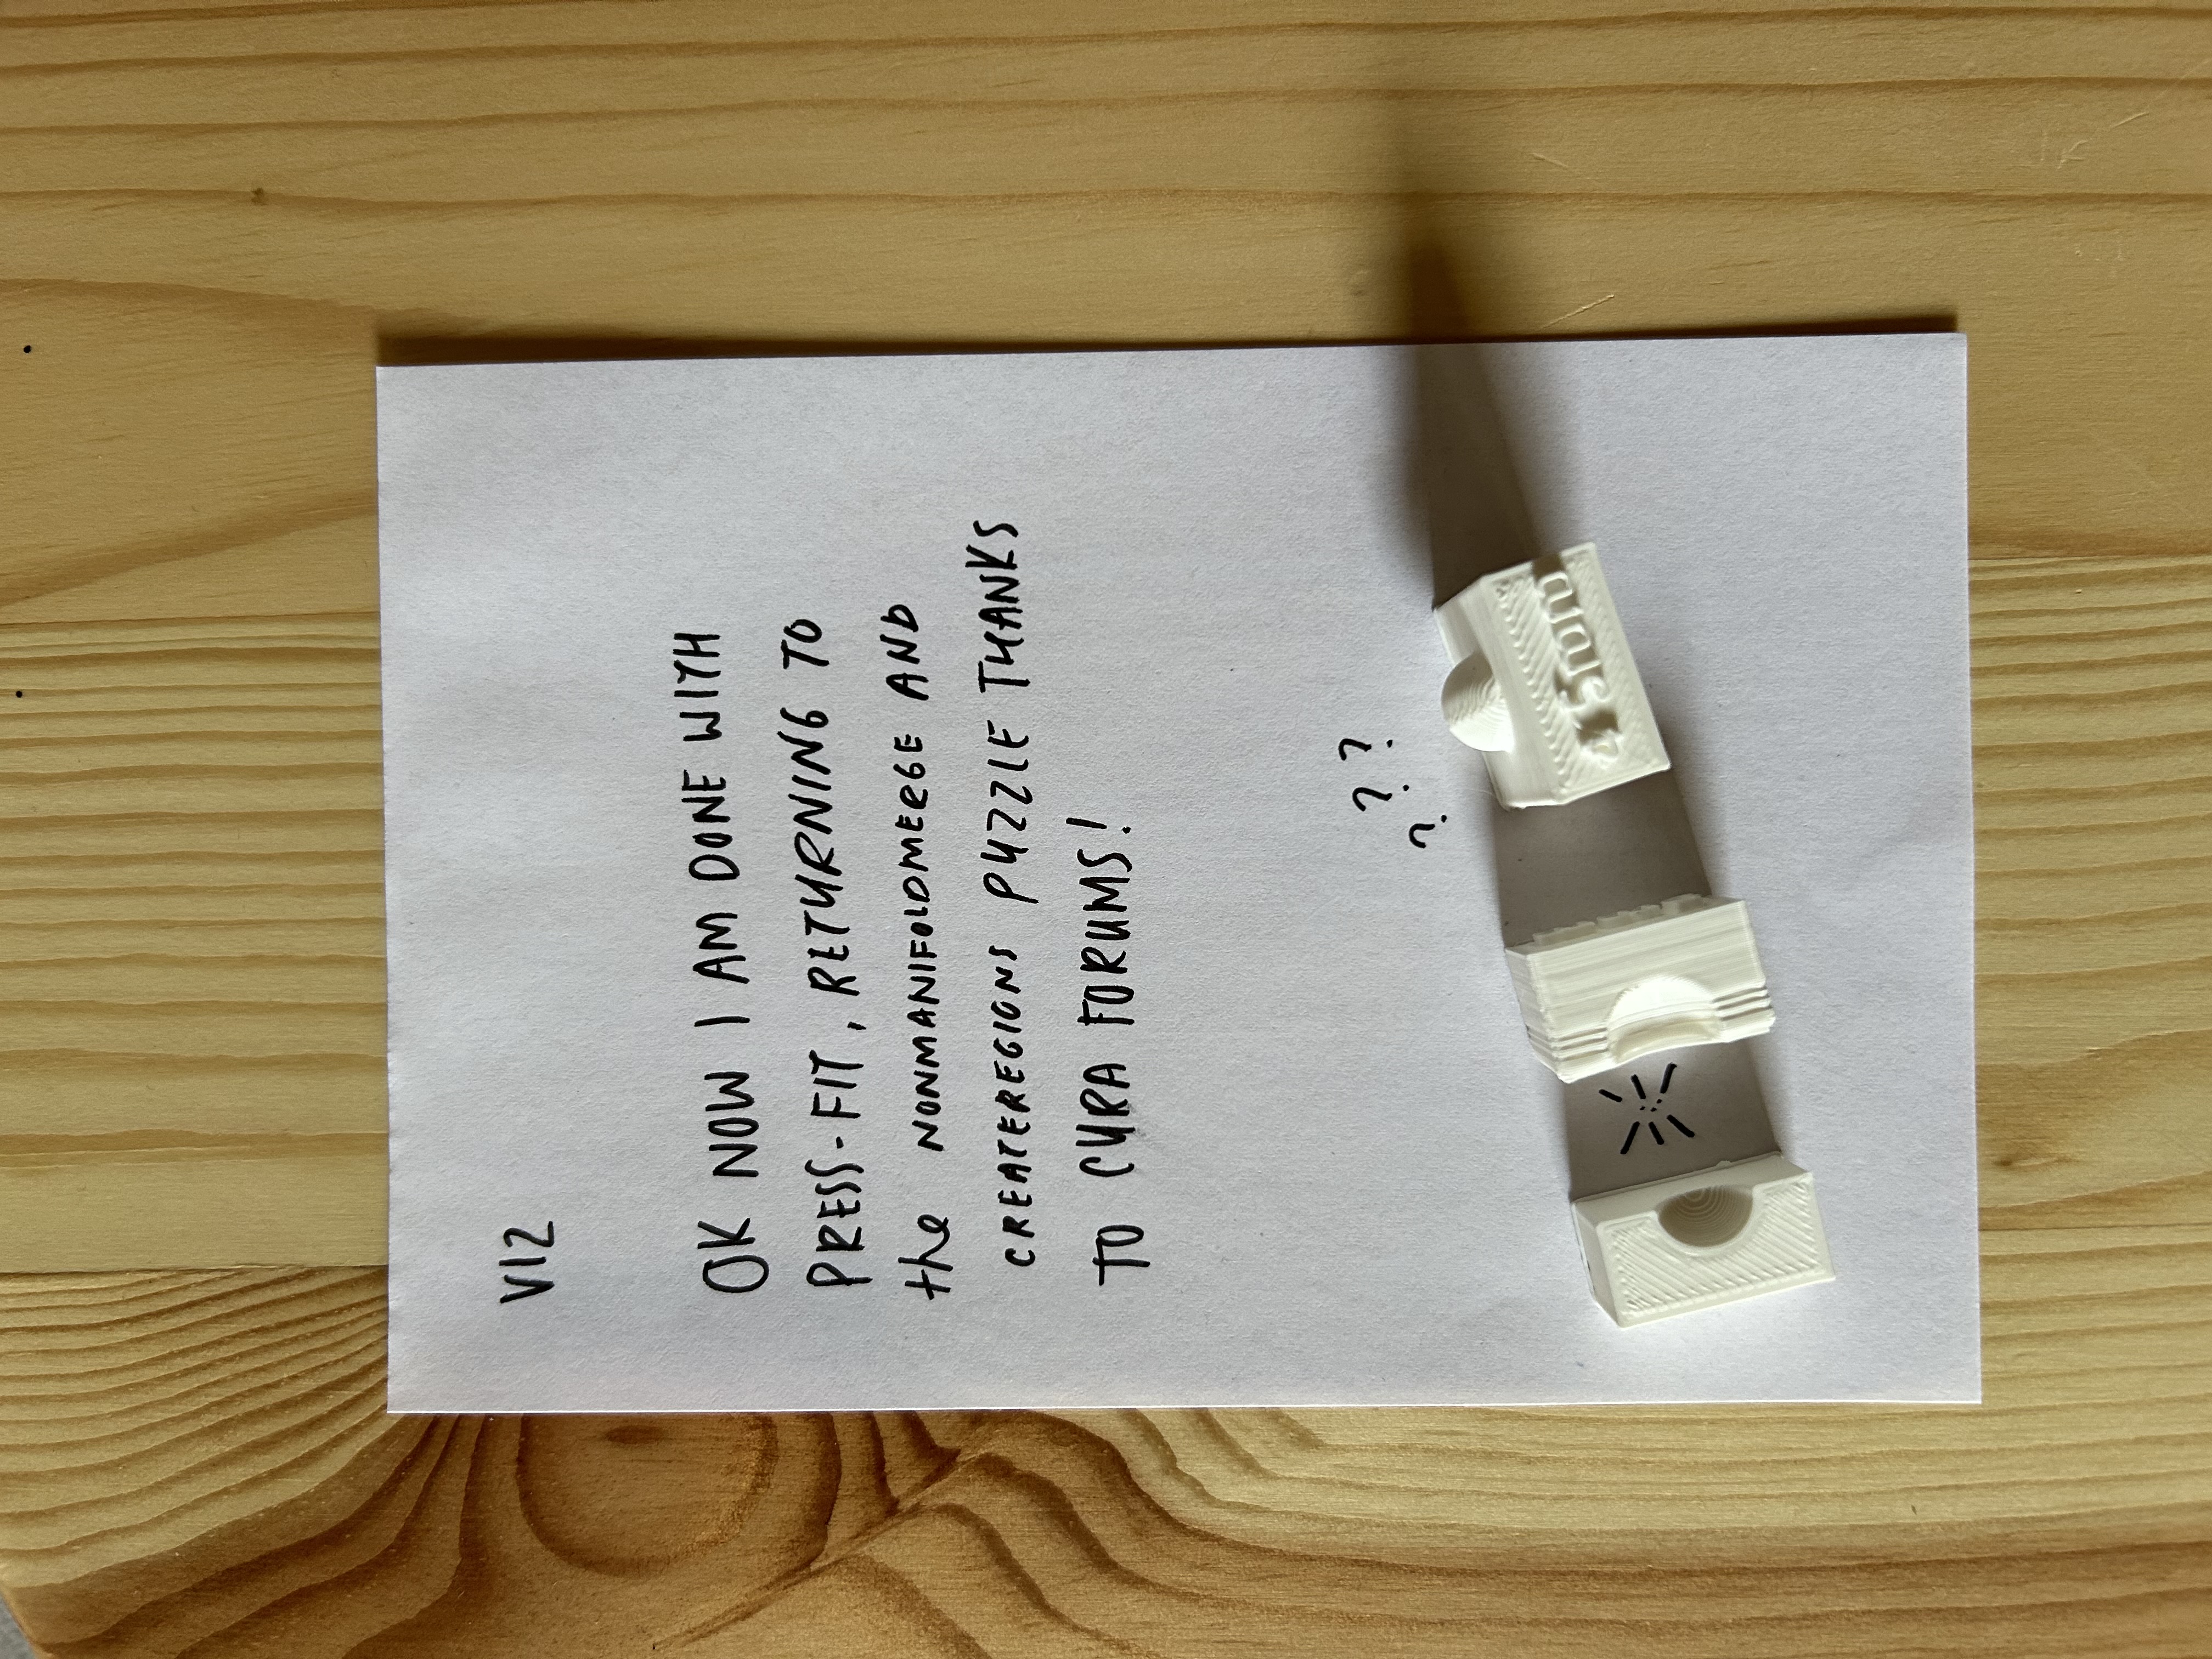 V12
OK NOW I AM DONE WITH
PRESS-FIT, RETURNING TO
the NONMANIFOLDMERGE AND
CREATEREGIONS PUZZLE THANKS
TO CURA FORUMS!
? ? ?
45mm